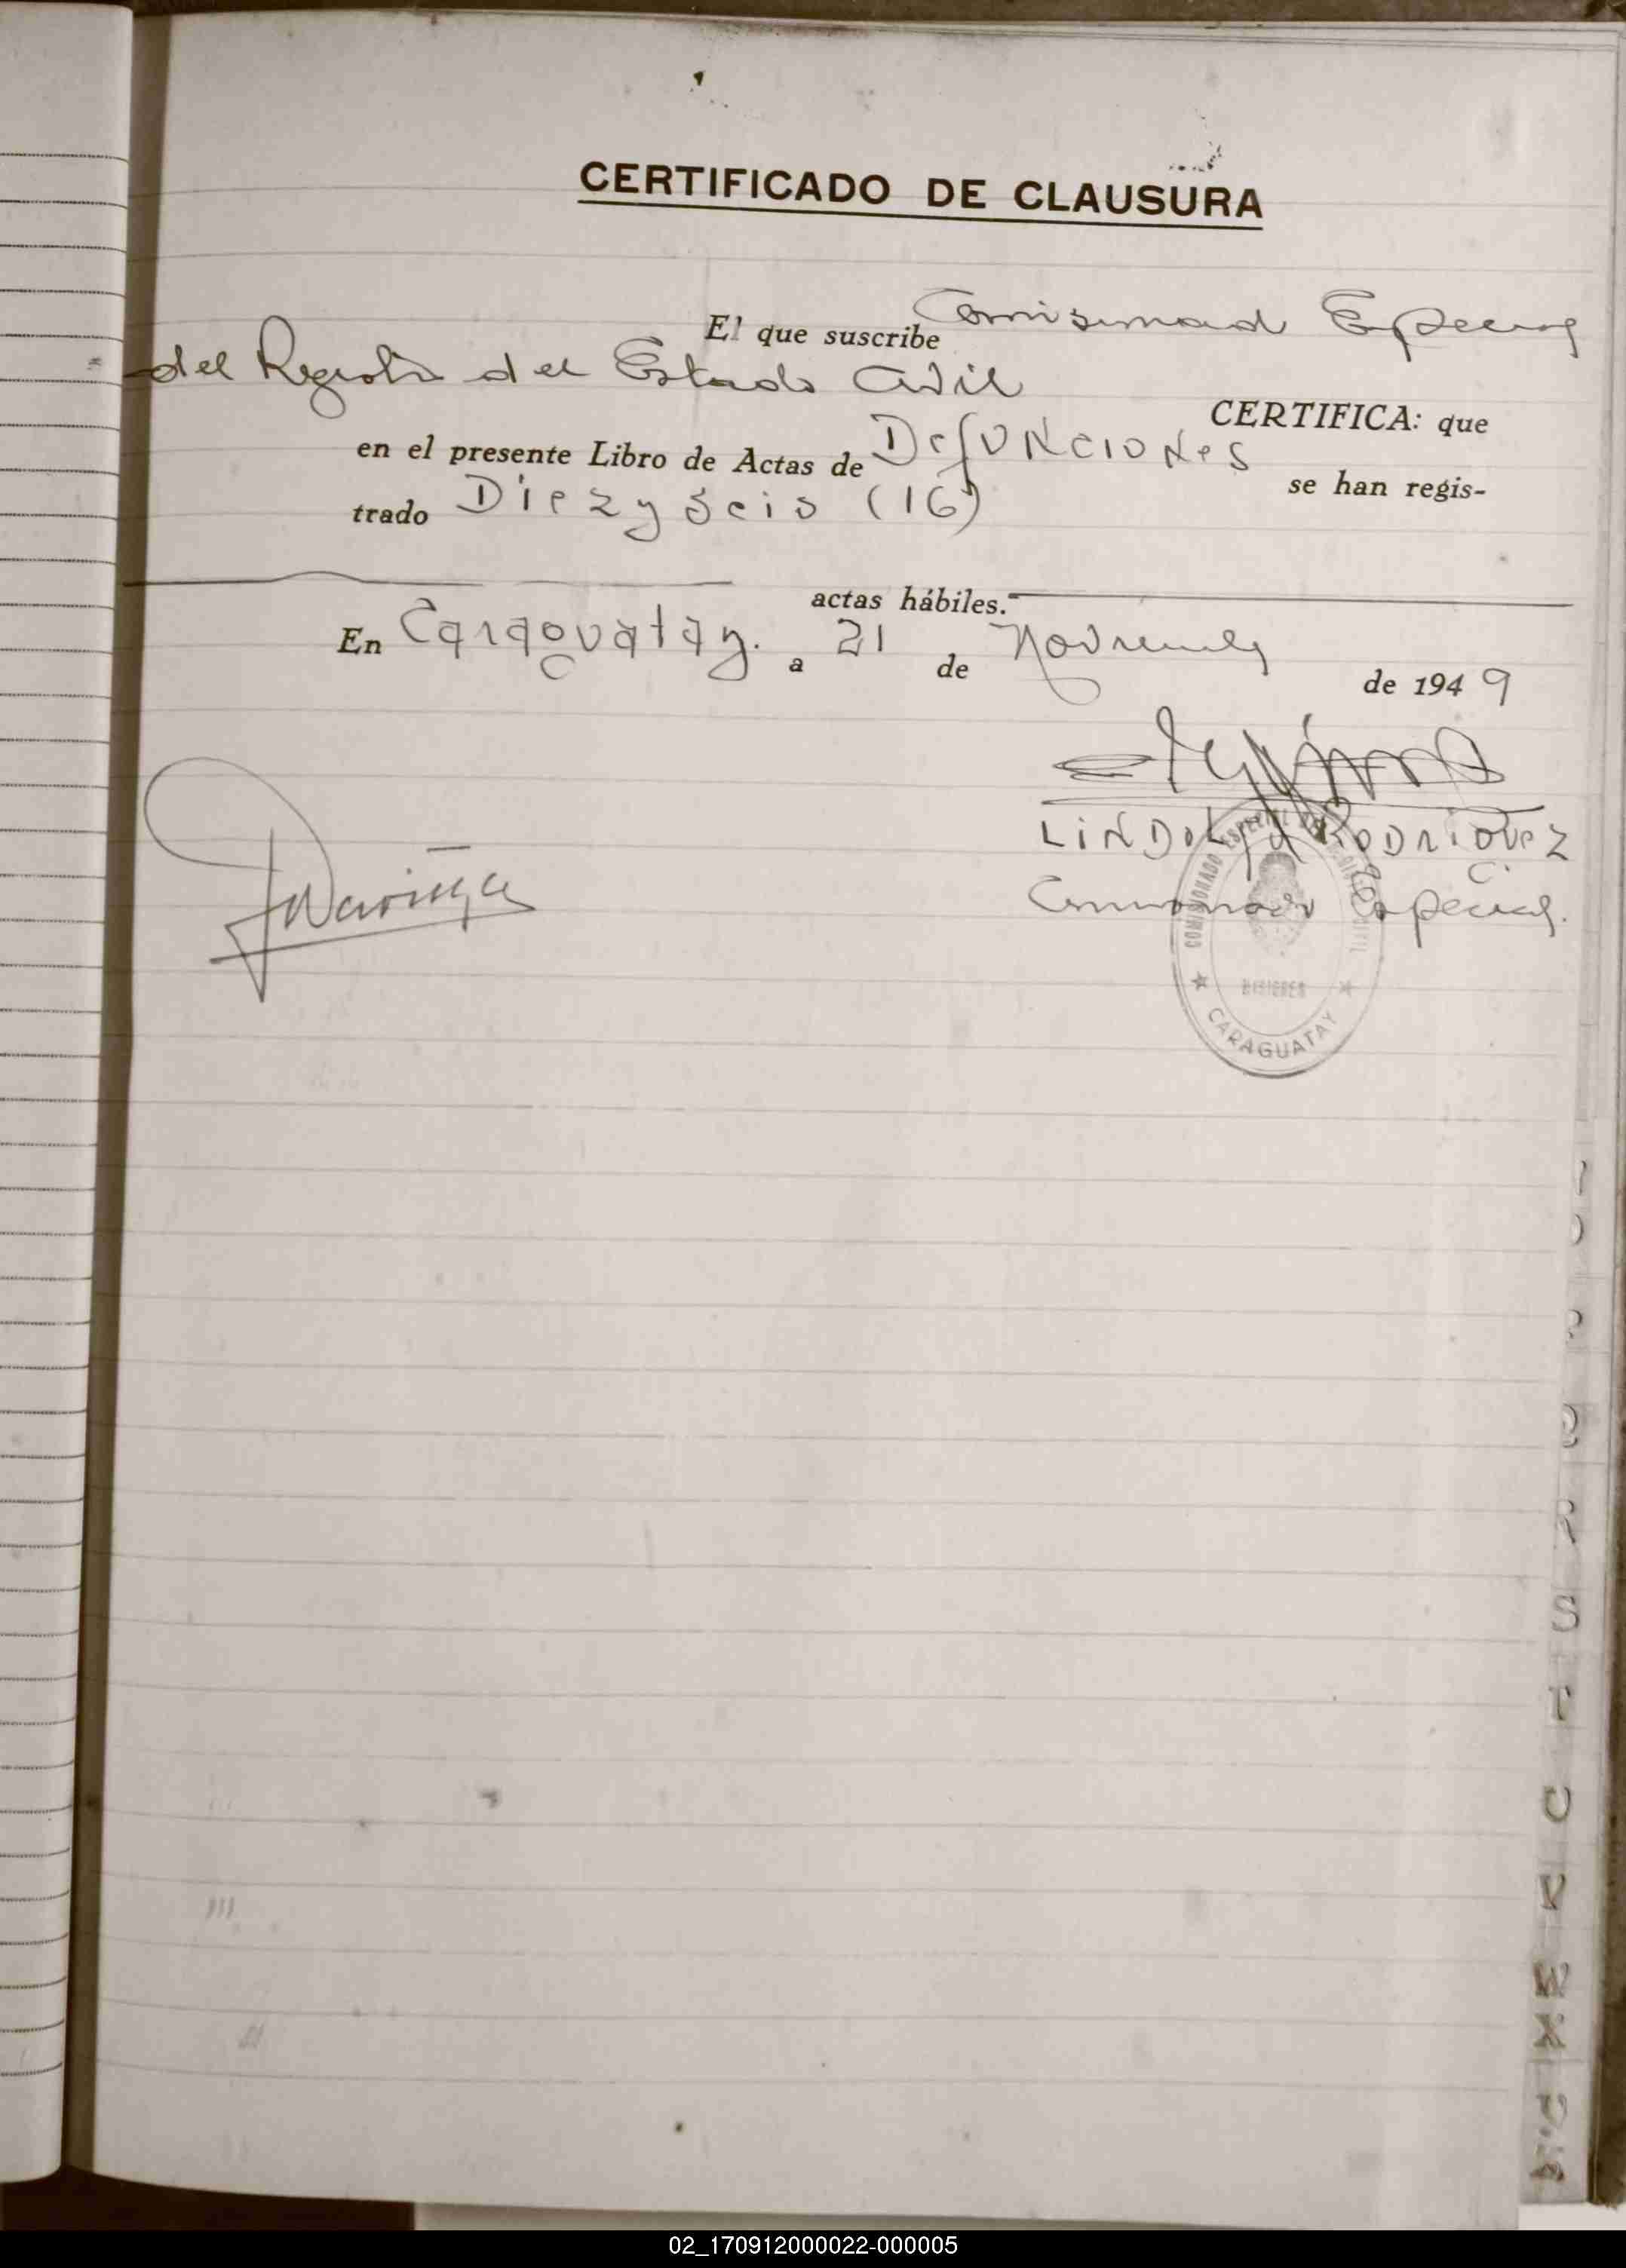 CERTIFICADO DE CLAUSURA
El que suscribe Comisionado Especial
del Registro del Estado Civil
CERTIFICA: que
en el presente Libro de Actas de Defunciones
se han regis-
trado Diez y seis (16)
actas hábiles.
En Caraguatay. a 21 de Noviembre de 1949
LINDOLFO RODRIGUEZ
Comisionado Especial.
COMISIONADO ESPECIAL DEL REGISTRO CIVIL
MISIONES
★ CARAGUATAY ★
02_170912000022-000005